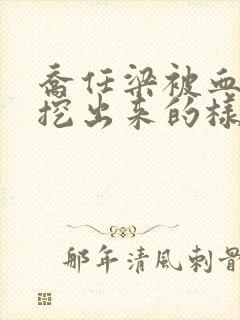 喬任梁被血
挖出来的樣
那年清風刺骨